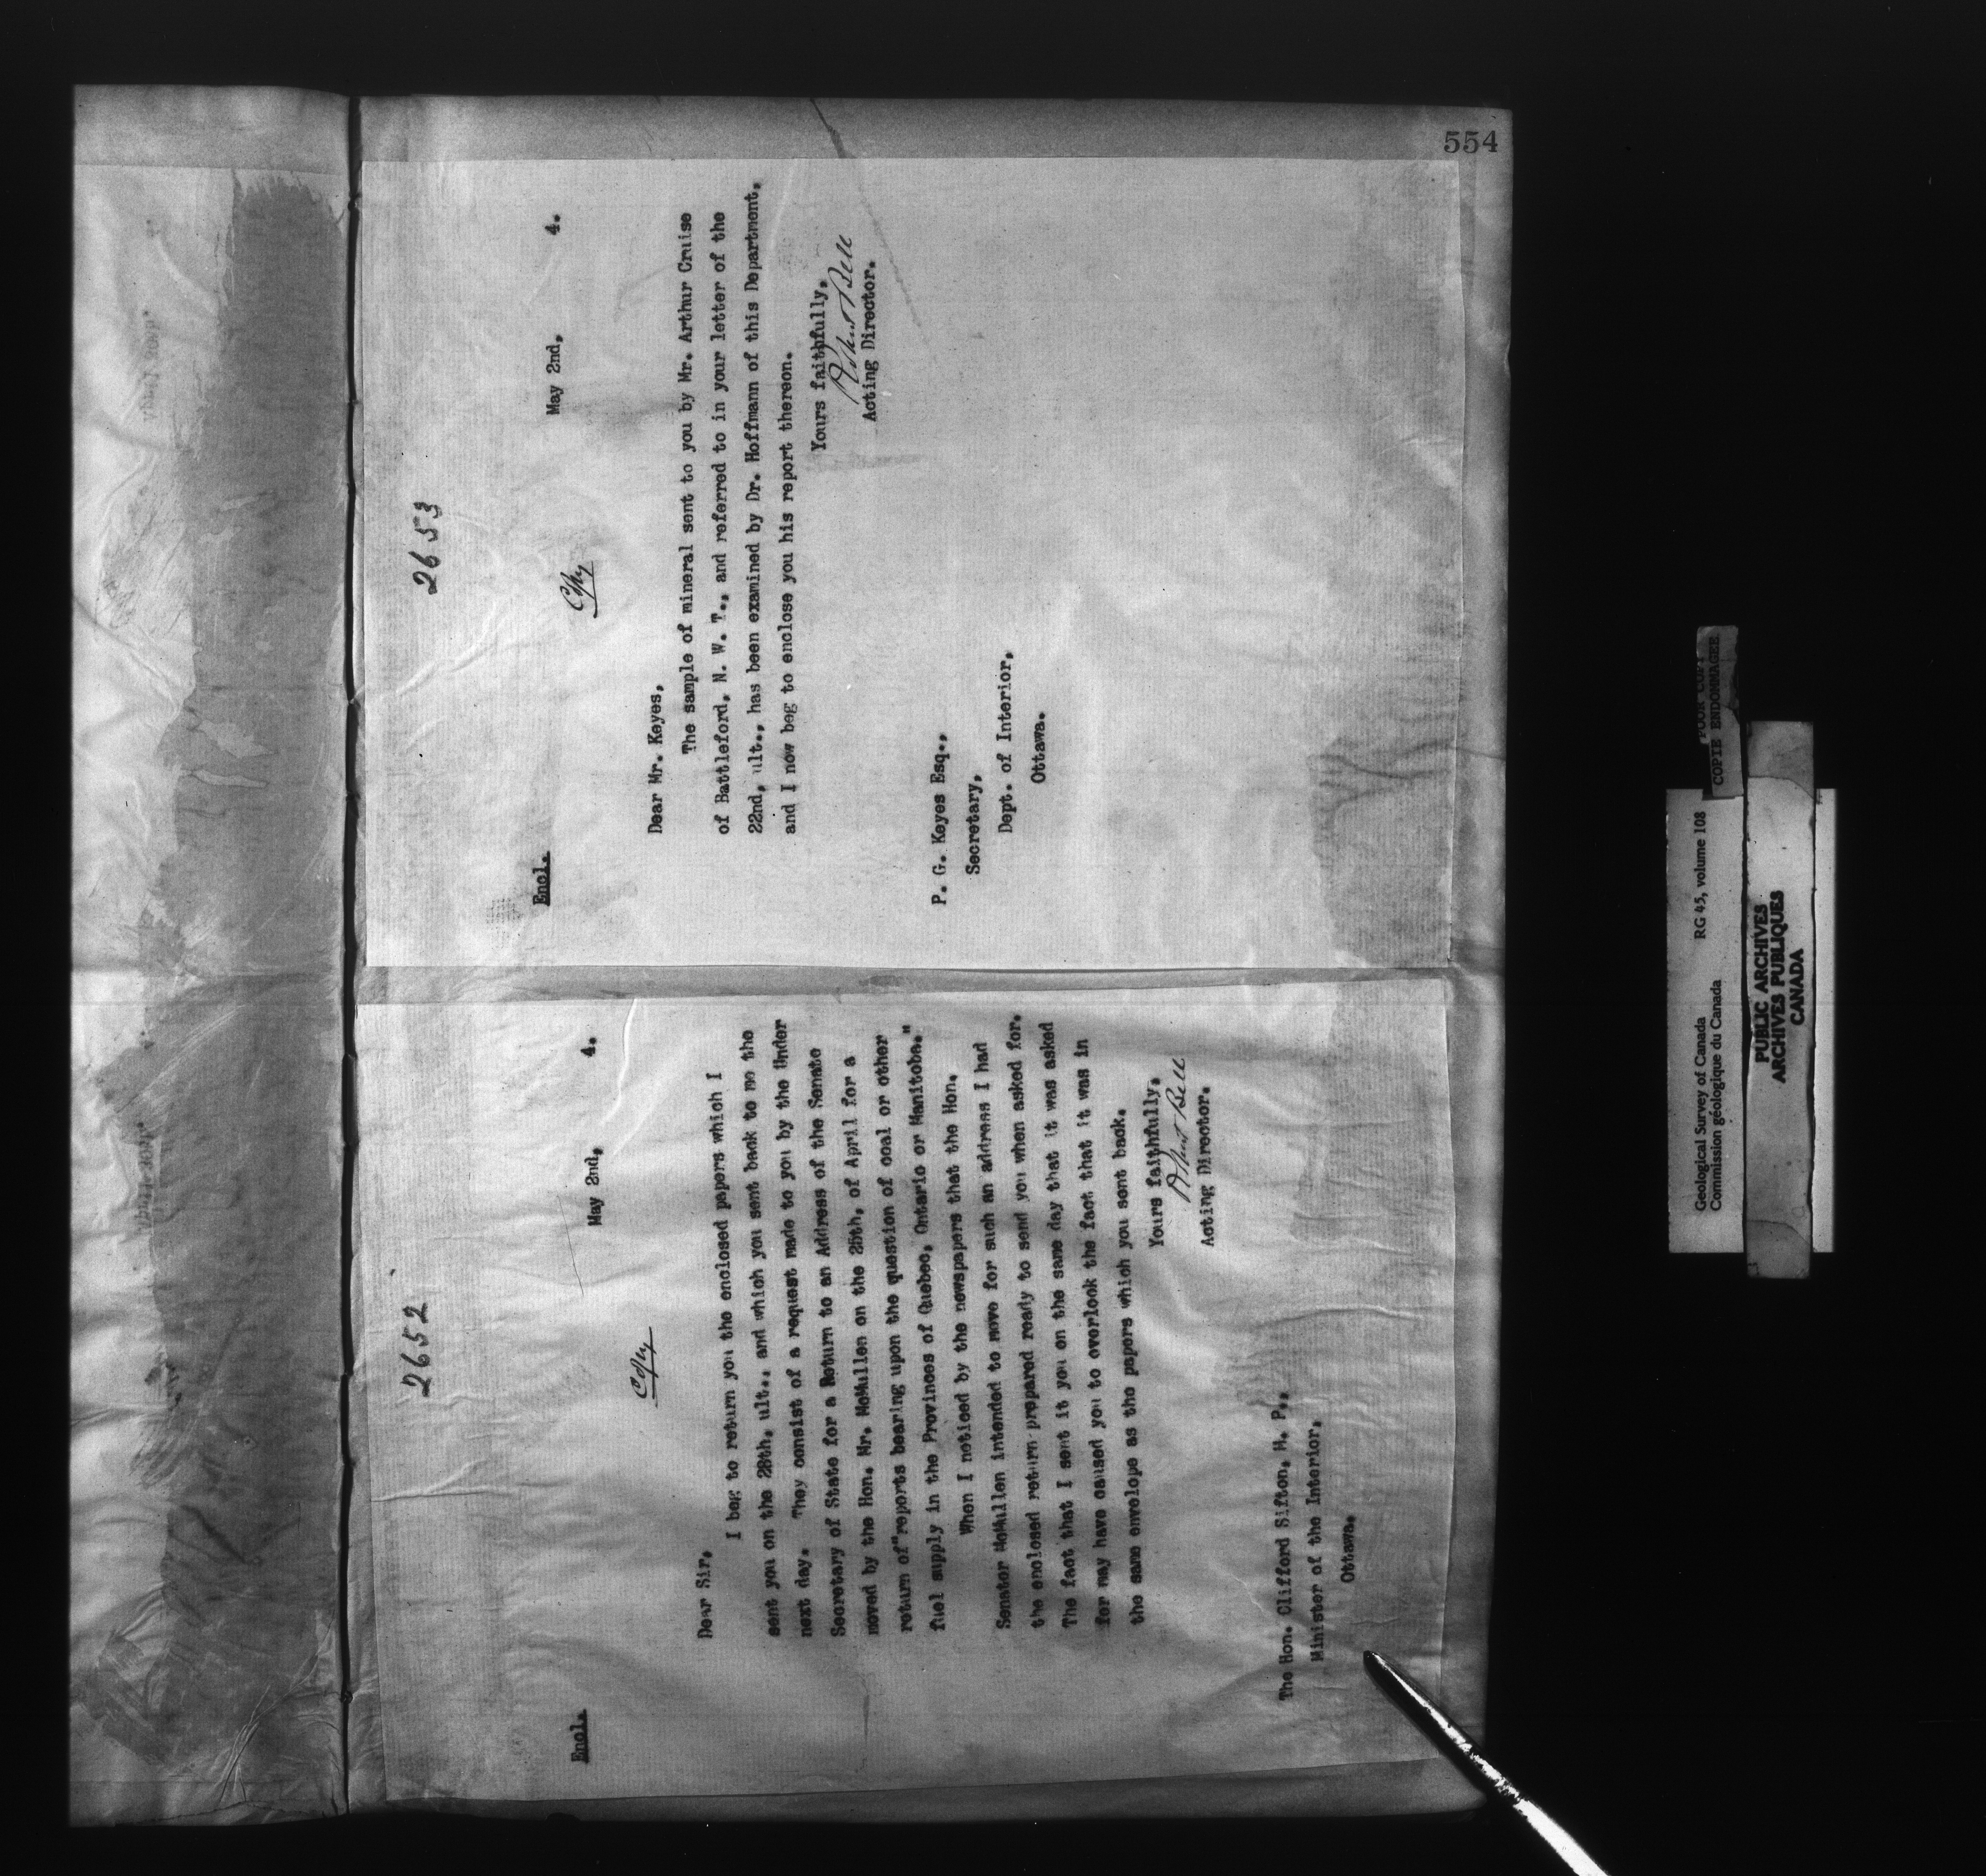 554
2652
Encl.
May 2nd, 4.
Copy
Dear Sir,
I beg to return you the enclosed papers which I
sent you on the 28th, ult., and which you sent back to me the
next day. They consist of a request made to you by the Under
Secretary of State for a Return to an Address of the Senate
moved by the Hon. Mr. McMullen on the 25th, of April for a
return of "reports bearing upon the question of coal or other
fuel supply in the Provinces of Quebec, Ontario or Manitoba."
When I noticed by the newspapers that the Hon.
Senator McMullen intended to move for such an address I had
the enclosed return prepared ready to send you when asked for.
The fact that I sent it you on the same day that it was asked
for may have caused you to overlook the fact that it was in
the same envelope as the papers which you sent back.
Yours faithfully,
Robert Bell
Acting Director.
The Hon. Clifford Sifton, M. P.,
Minister of the Interior,
Ottawa.
2653
Encl.
May 2nd, 4.
Copy
Dear Mr. Keyes,
The sample of mineral sent to you by Mr. Arthur Cruise
of Battleford, N. W. T., and referred to in your letter of the
22nd, ult., has been examined by Dr. Hoffmann of this Department,
and I now beg to enclose you his report thereon.
Yours faithfully,
Robert Bell
Acting Director.
P. G. Keyes Esq.,
Secretary,
Dept. of Interior,
Ottawa.
Geological Survey of Canada RG 45, volume 108
Commission géologique du Canada
PUBLIC ARCHIVES
ARCHIVES PUBLIQUES
CANADA
POOR COPY
COPIE ENDOMMAGEE